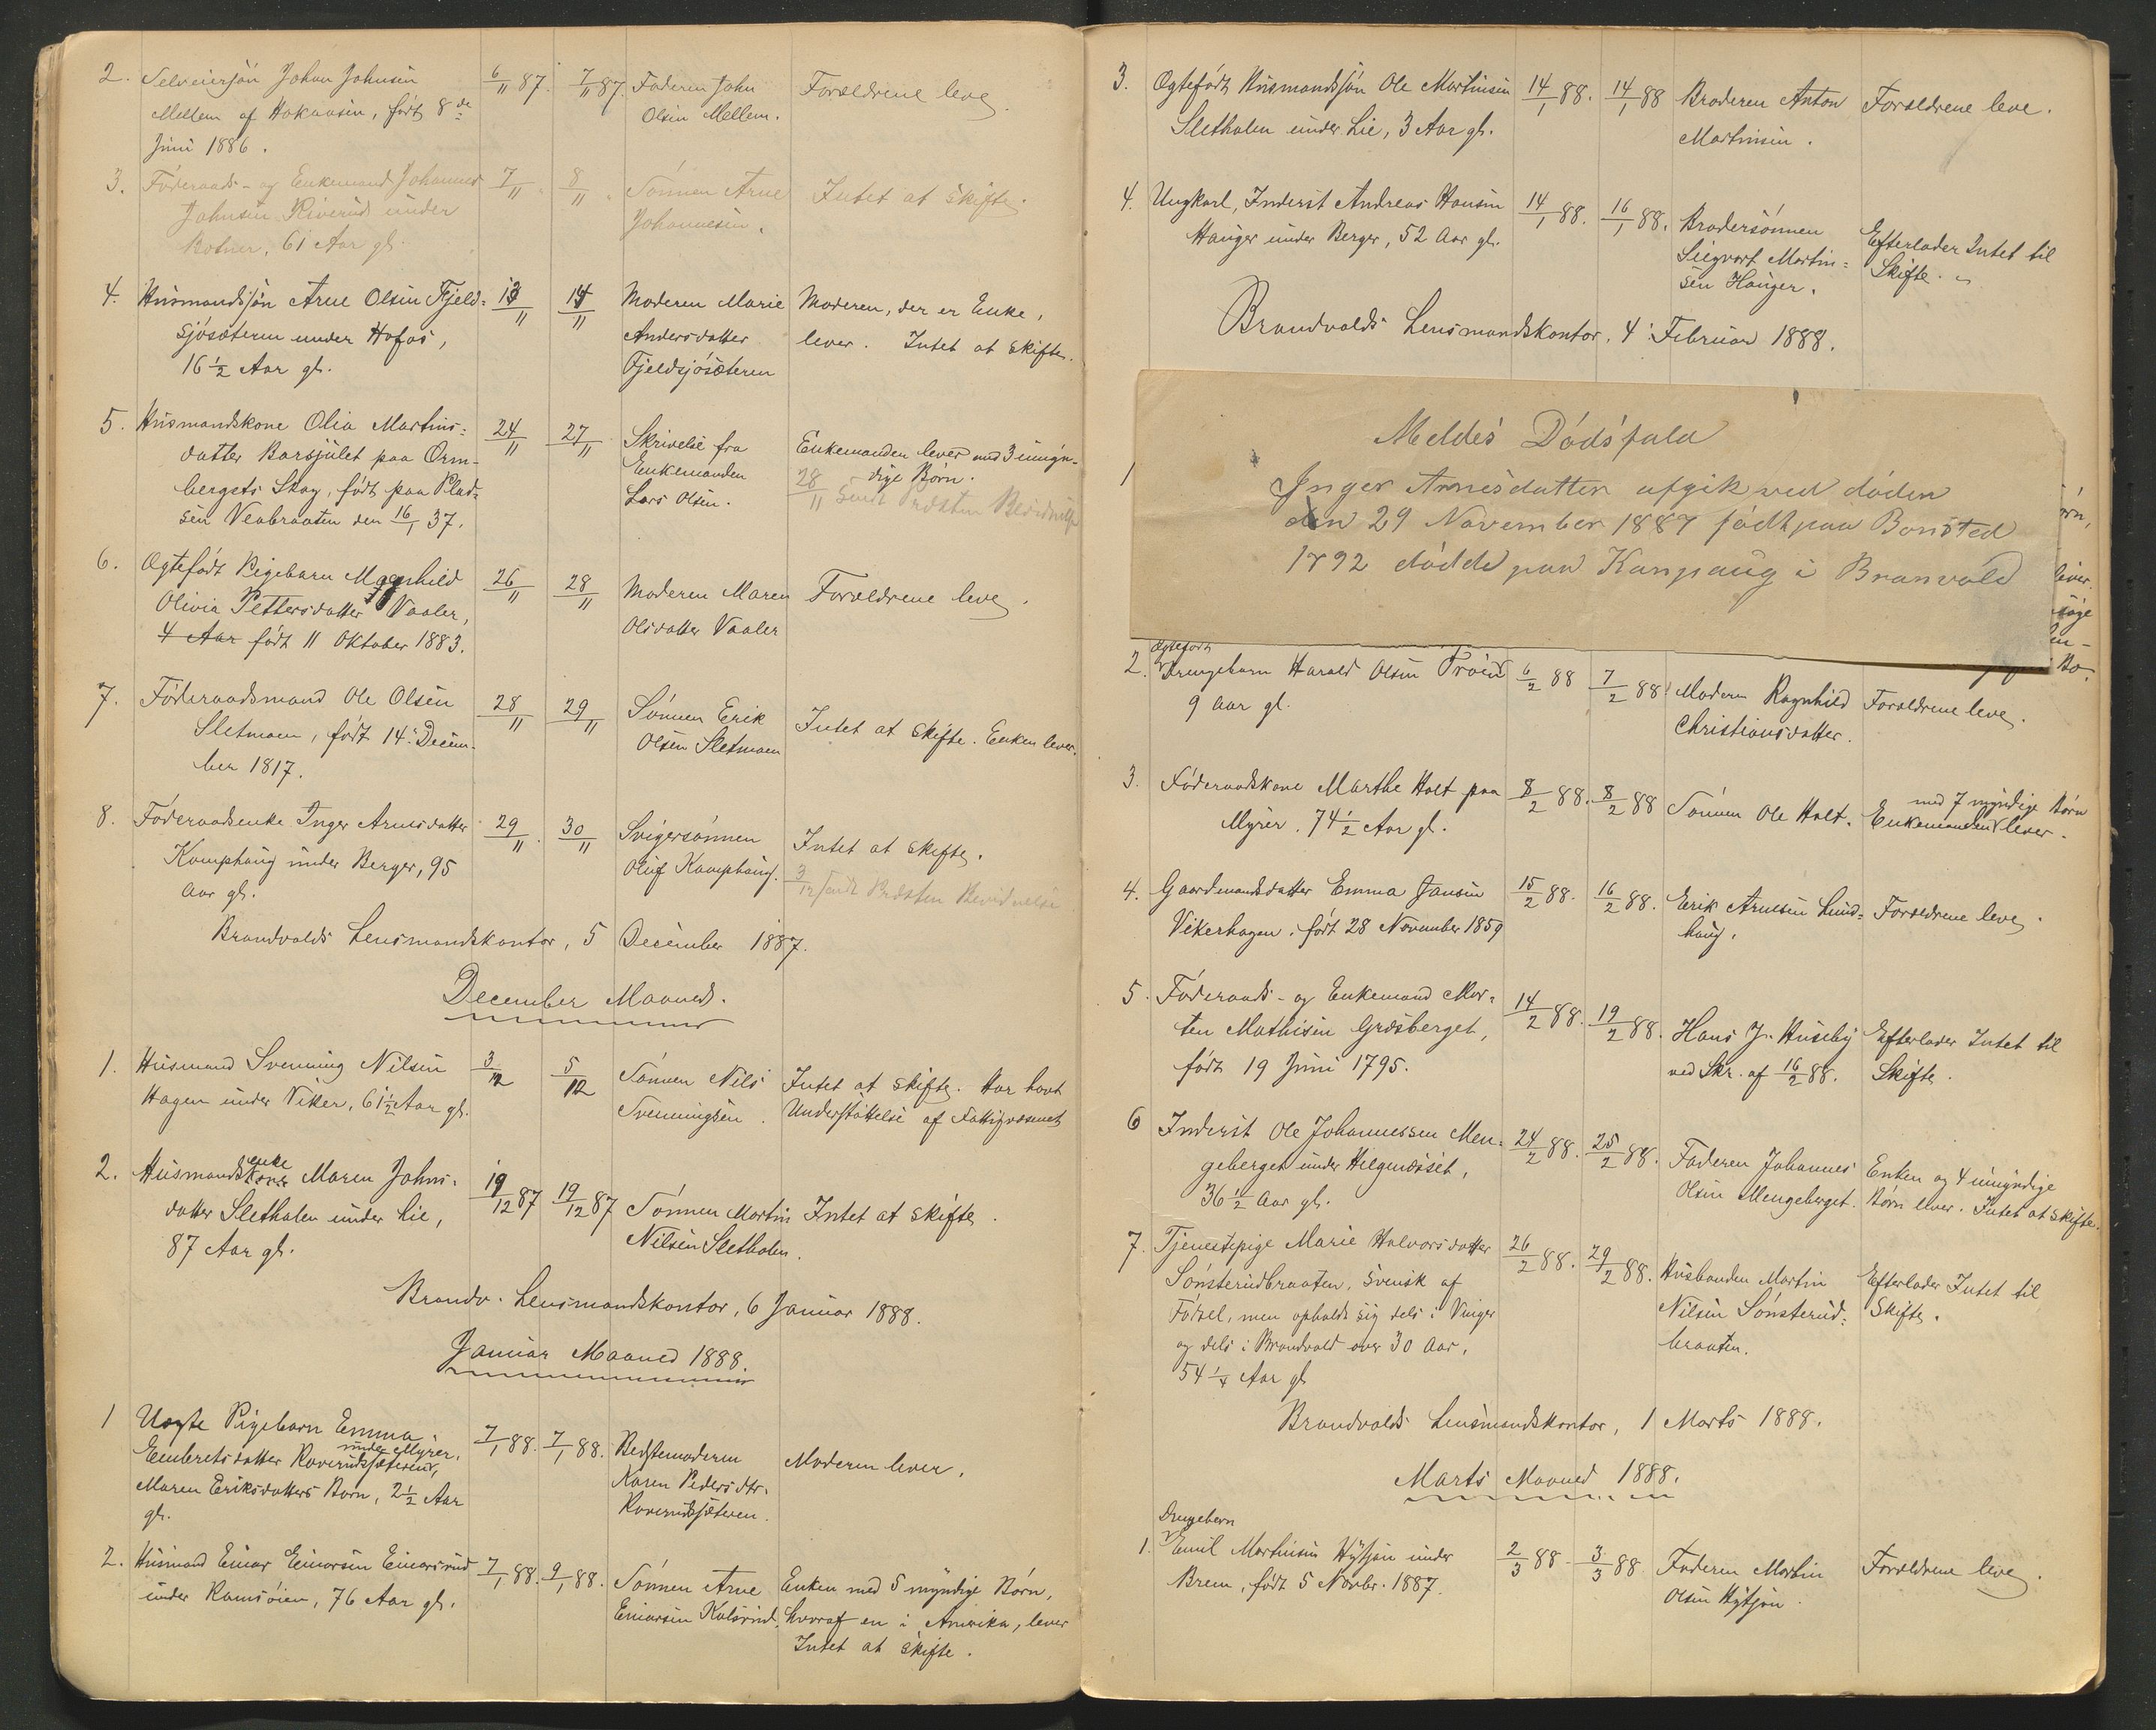 2. Selveiersøn Johan Johnsen 6/11 87. 7/11 87. Faderen John Forældrene leve.
Mellem af Hokaasen, født 8de Olsen Mellem.
Juni 1886.
3. Føderaads- og Enkemand Johannes 7/11 8/11 Sønnen Arne Intet at skifte.
Johnsen Riverud under Johannesen.
Rotner, 61 Aar gl.
4. Husmandssøn Arne Olsen Fjeld= 13/11 14/11 Moderen Marie Moderen, der er Enke,
sjøsæteren under Hofos, Andersdatter lever. Intet at skifte.
16 1/2 Aar gl. Fjeldsjøsæteren
5. Husmandskone Olia Martins= 24/11 27/11 Skrivelse fra Enkemanden lever med 3 umyn=
datter Barsjulet paa Orm= Enkemanden dige Børn.
bergets Skog, født paa Plad= Lars Olsen. 28/11 Sendt Præsten Bevidnelse
sen Veabraaten den 16/1 37.
6. Ægtefødt Pigebarn Magnhild 26/11 28/11 Moderen Maren Forældrene leve.
Olivia Pettersdatter Vaaler, Olsdatter Vaaler
4 Aar født 11 Oktober 1883.
7. Føderaadsmand Ole Olsen 28/11 29/11 Sønnen Erik Intet at skifte. Enken lever.
Sletmoen, født 14. Decem= Olsen Sletmoen
ber 1817.
8. Føderaadsenke Inger Arnesdatter 29/11 30/11 Svigersønnen Intet at skifte.
Kamphaug under Berger, 95 Oluf Kamphaug. 3/12 sendt Præsten Bevidnelse
Aar gl.
Brandvolds Lensmandskontor, 5 December 1887.
December Maaned.
1. Husmand Svenning Nilsen 3/12 5/12 Sønnen Nils Intet at skifte. Har havt
Hagen under Viker, 61 1/2 Aar gl. Svenningsen. Understøttelse af Fattigvæsenet
enke
2. Husmandskone Maren Johns= 19/12 87 19/12 87 Sønnen Martin Intet at skifte.
datter Sletholen under Lie, Nilsen Sletholen.
87 Aar gl.
Brandv. Lensmandskontor, 6 Januar 1888.
Januar Maaned 1888.
1 Uægte Pigebarn Emma 7/1 88. 7/1 88. Bedstemoderen Moderen lever.
under Myrer,
Embretsdatter Roverudsæteren, Karen Pedersdtr.
Maren Eriksdatters Barn, 2 1/2 Aar Roverudsæteren.
gl.
2. Husmand Einar Einarsen Einarsrud 7/1 88. 9/1 88. Sønnen Arne Enken med 5 myndige Børn,
under Ramsøien, 76 Aar gl. Einarsen Kolsrud. hvoraf en i Amerika, lever
Intet at skifte.
3. Ægtefødt Husmandssøn Ole Martinsen 14/1 88. 14/1 88 Broderen Anton Forældrene leve.
Sletholen under Lie, 3 Aar gl. Martinsen.
4. Ungkarl, Inderst Andreas Hansen 14/1 88. 16/1 88. Brodersønnen Efterlader Intet til
Hauger under Berger, 52 Aar gl. Siegvart Martin= Skifte.
sen Hauger.
Brandvolds Lensmandskontor, 4. Februar 1888.
Meldes Dødsfald
1
Inger Arnesdatter afgik ved døden
den 29 November 1887 født paa Bonsted
1792 dødde paa Kampaug i Branvold
Ægtefødt
2. Drengebarn Harald Olsen Trøen 6/2 88 7/2 88 Moderen Ragnhild Forældrene leve.
9 Aar gl. Christiansdatter.
3. Føderaadskone Marthe Holt paa 8/2 88. 8/2 88 Sønnen Ole Holt. Enkemanden med 7 myndige Børn lever.
Myrer, 74 1/2 Aar gl.
4. Gaardmandsdatter Emma Jansen 15/2 88. 16/2 88. Erik Arnesen Lund= Forældrene leve.
Vikerhagen, født 28 November 1859 haug.
5. Føderaads- og Enkemand Mor= 14/2 88. 19/2 88. Hans J. Huseby Efterlader Intet til
ten Mathisen Græsberget, ved Skr. af 16/2 88. Skifte.
født 19 Juni 1795.
6 Inderst Ole Johannessen Men= 24/2 88. 25/2 88. Faderen Johannes Enken og 4 umyndige
geberget under Hiegnæsset, Olsen Mengeberget. Børn lever. Intet at skifte.
36 1/2 Aar gl.
7. Tjenestepige Marie Halvorsdatter 26/2 88. 29/2 88. Husbonden Martin Efterlader Intet til
Sønsterudbraaten, Svensk af Nilsen Sønsterud= Skifte.
Fødsel, men opholdt sig dels i Vinger braaten.
og dels i Brandvold over 30 Aar,
54 1/4 Aar gl
Brandvolds Lensmandskontor, 1 Marts 1888.
Marts Maaned 1888.
Drengebarn
1. Emil Martinsen Hytjan under 2/3 88 3/3 88 Faderen Martin Forældrene leve.
Brem, født 5 Novbr. 1887. Olsen Hytjan.